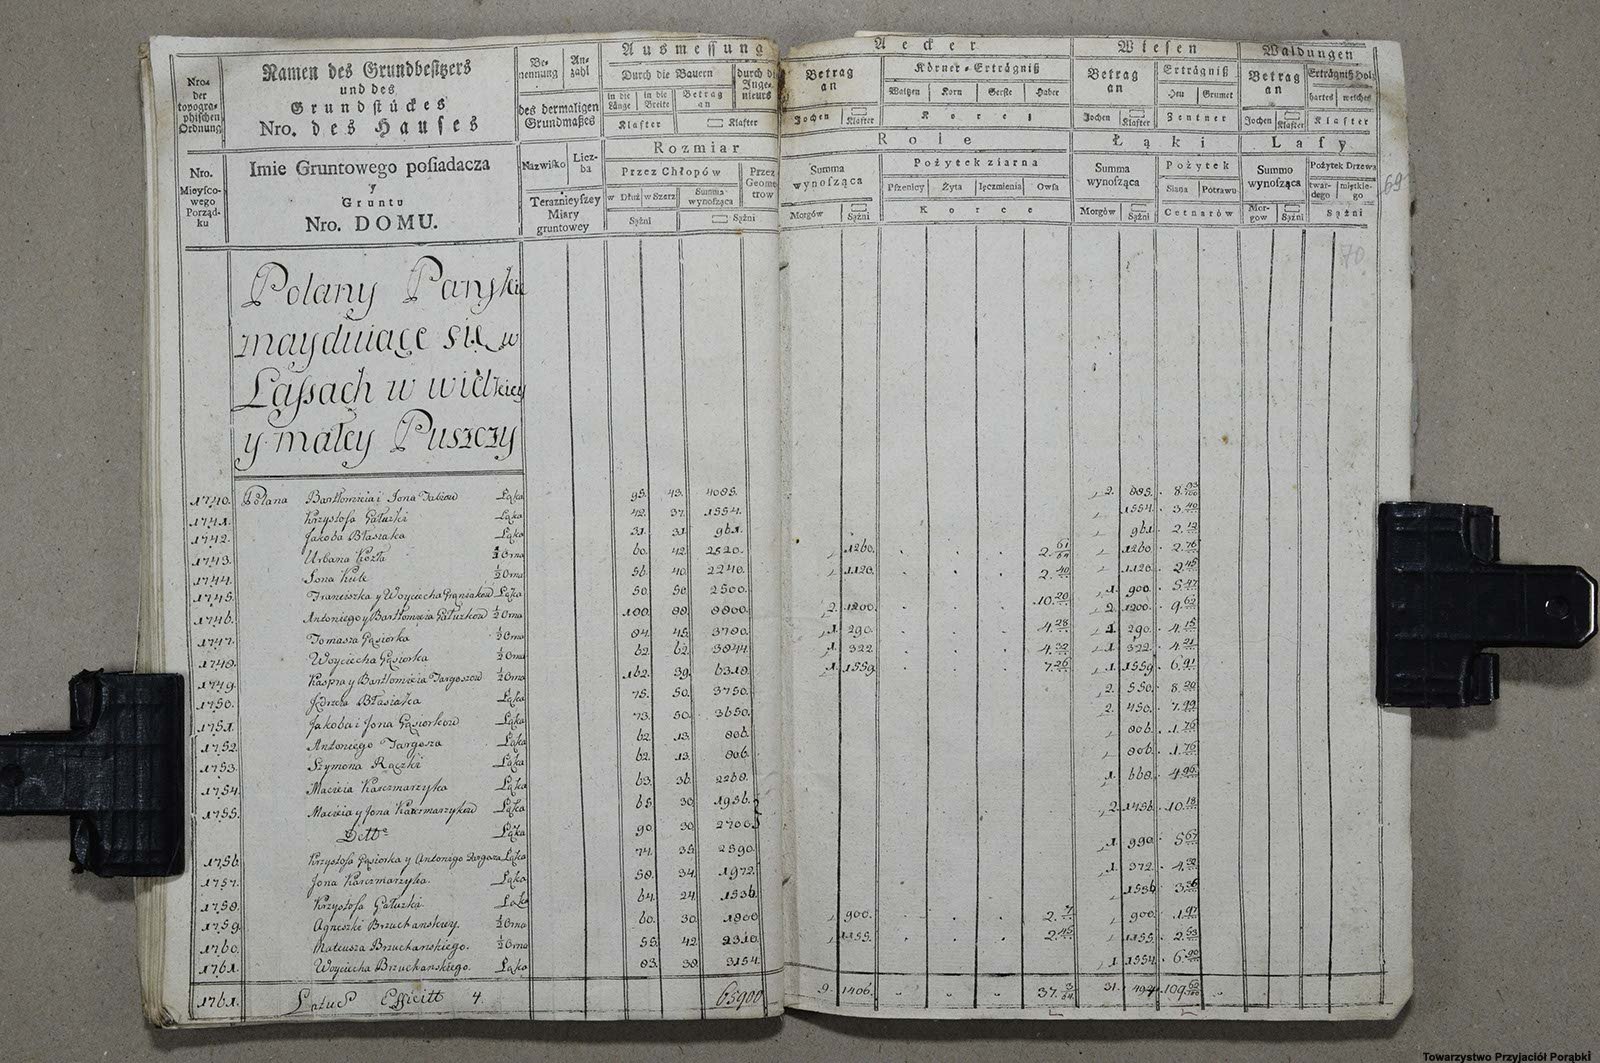 Nro. der topographischen Ordnung.
Namen des Grundbesitzers
und des
Grundstückes
Nro. des Hauses
Benennung
Anzahl
des dermaligen Grundmaßes
Ausmessung
Durch die Bauern
durch die Ingenieurs
in die Länge
in die Breite
Betrag an
Klafter
Klafter
Aecker
Betrag an
Körner-Erträgniß
Waitzen Korn Gerste Haber
Jochen Klafter
Korez
Wiesen
Betrag an
Erträgniß
Heu Grumet
Jochen Klafter
Zentner
Waldungen
Betrag an
Erträgniß Holz
hartes weiches
Jochen Klafter
Klafter
Nro. Mieysco-wego Porząd-ku
Imie Gruntowego posiadacza
y
Gruntu
Nro. DOMU.
Nazwisko
Licz-ba
Teraznieyszey Miary gruntowey
Rozmiar
Przez Chłopów
Przez Geometrow
w Dłuż w Szerz
Summa wynosząca
Sążni
Sążni
Role
Summa wynosząca
Pożytek ziarna
Pszenicy Żyta Jęczmienia Owsa
Morgów Sążni
Korce
Łąki
Summa wynosząca
Pożytek
Siana Potrawu
Morgów Sążni
Cetnarów
Lasy
Summo wynosząca
Pożytek Drzewa
twar-dego miętkie-go
Mor-gow Sążni
Sążni
69
70
Polany Pańskie
znayduiące się w
Lassach w wielkiey
y małey Puszczy
1740. Polana Bartłomieia i Jona Jakow Łąka 95. 43. 4085. 2. 885. 8. 93/100
1741. Krzysztofa Gałuszki Łąka 42. 37. 1554. 1554. 3. 40
1742. Jakoba Błasiaka Łąka 31. 31. 961. 961. 2. 12
1743. Urbana Kozła ½ Orna 60. 42. 2520. 1260. 2. 61/64 1260 2. 76
1744. Jona Kule ½ Orna 56. 40. 2240. 1120. 2. 40 1120. 2. 45
1745. Franciszka y Woyciecha Łąka 50. 50. 2500. 1. 900. 5. 47
1746. Antoniego y Bartłomieia Gałuszków ½ Orna 100. 88. 8800. 2. 1200. 10. 20 2. 1200. 9. 62
1747. Tomasza Gąsiorka ½ Orna 84. 45. 3780. 1. 290. 4. 28 1. 290. 4. 15
1748. Woyciecha Gąsiorka ½ Orna 62. 62. 3844. 1. 322 4. 32 1. 322. 4. 21
1749. Kaspra y Bartłomieia Targoszow ½ Orna 162. 39. 6318. 1. 1559. 7. 26 1. 1559. 6. 91
1750. Jędrzeia Błasiaka Łąka 75. 50. 3750. 2. 550. 8. 20
1751. Jakoba i Jona Gąsiorków Łąka 73. 50. 3650. 2. 450. 7. 99
1752. Antoniego Targosza Łąka 62. 13. 806. 806. 1. 76
1753. Szymona Rączki Łąka 62. 13. 806. 806. 1. 76
1754. Macieia Karczmarzyka Łąka 63. 36. 2268. 1. 668. 4. 96
1755. Macieia y Jona Karczmarzyków Łąka 65. 30. 1956. 2. 1456. 10. 18
Detto Łąka 90. 30. 2700.
1756. Krzysztofa Gąsiorka y Antoniego Targosza Łąka 74. 35. 2590. 1. 990. 5. 67
1757. Jona Karczmarzyka. Łąka 58. 34. 1972. 1. 372. 4. 32
1758. Krzysztofa Gałuszki Łąka 64. 24. 1536. 1536 3. 36
1759. Agneszki Brzuchanskiey. ½ Orna 60. 30. 1800 900. 2. 7 900. 1. 97
1760. Mateusza Brzuchanskiego. ½ Orna 55. 42. 2310. 1155. 2. 45 1155 2. 53
1761. Woyciecha Brzuchanskiego. Łąka 83. 38. 3154. 1. 1554. 6. 90
1761. Latus Efficitt 4. 65900 9. 1406. 37. 3/64 31. 494. 109. 62/100
Towarzystwo Przyjaciół Porąbki